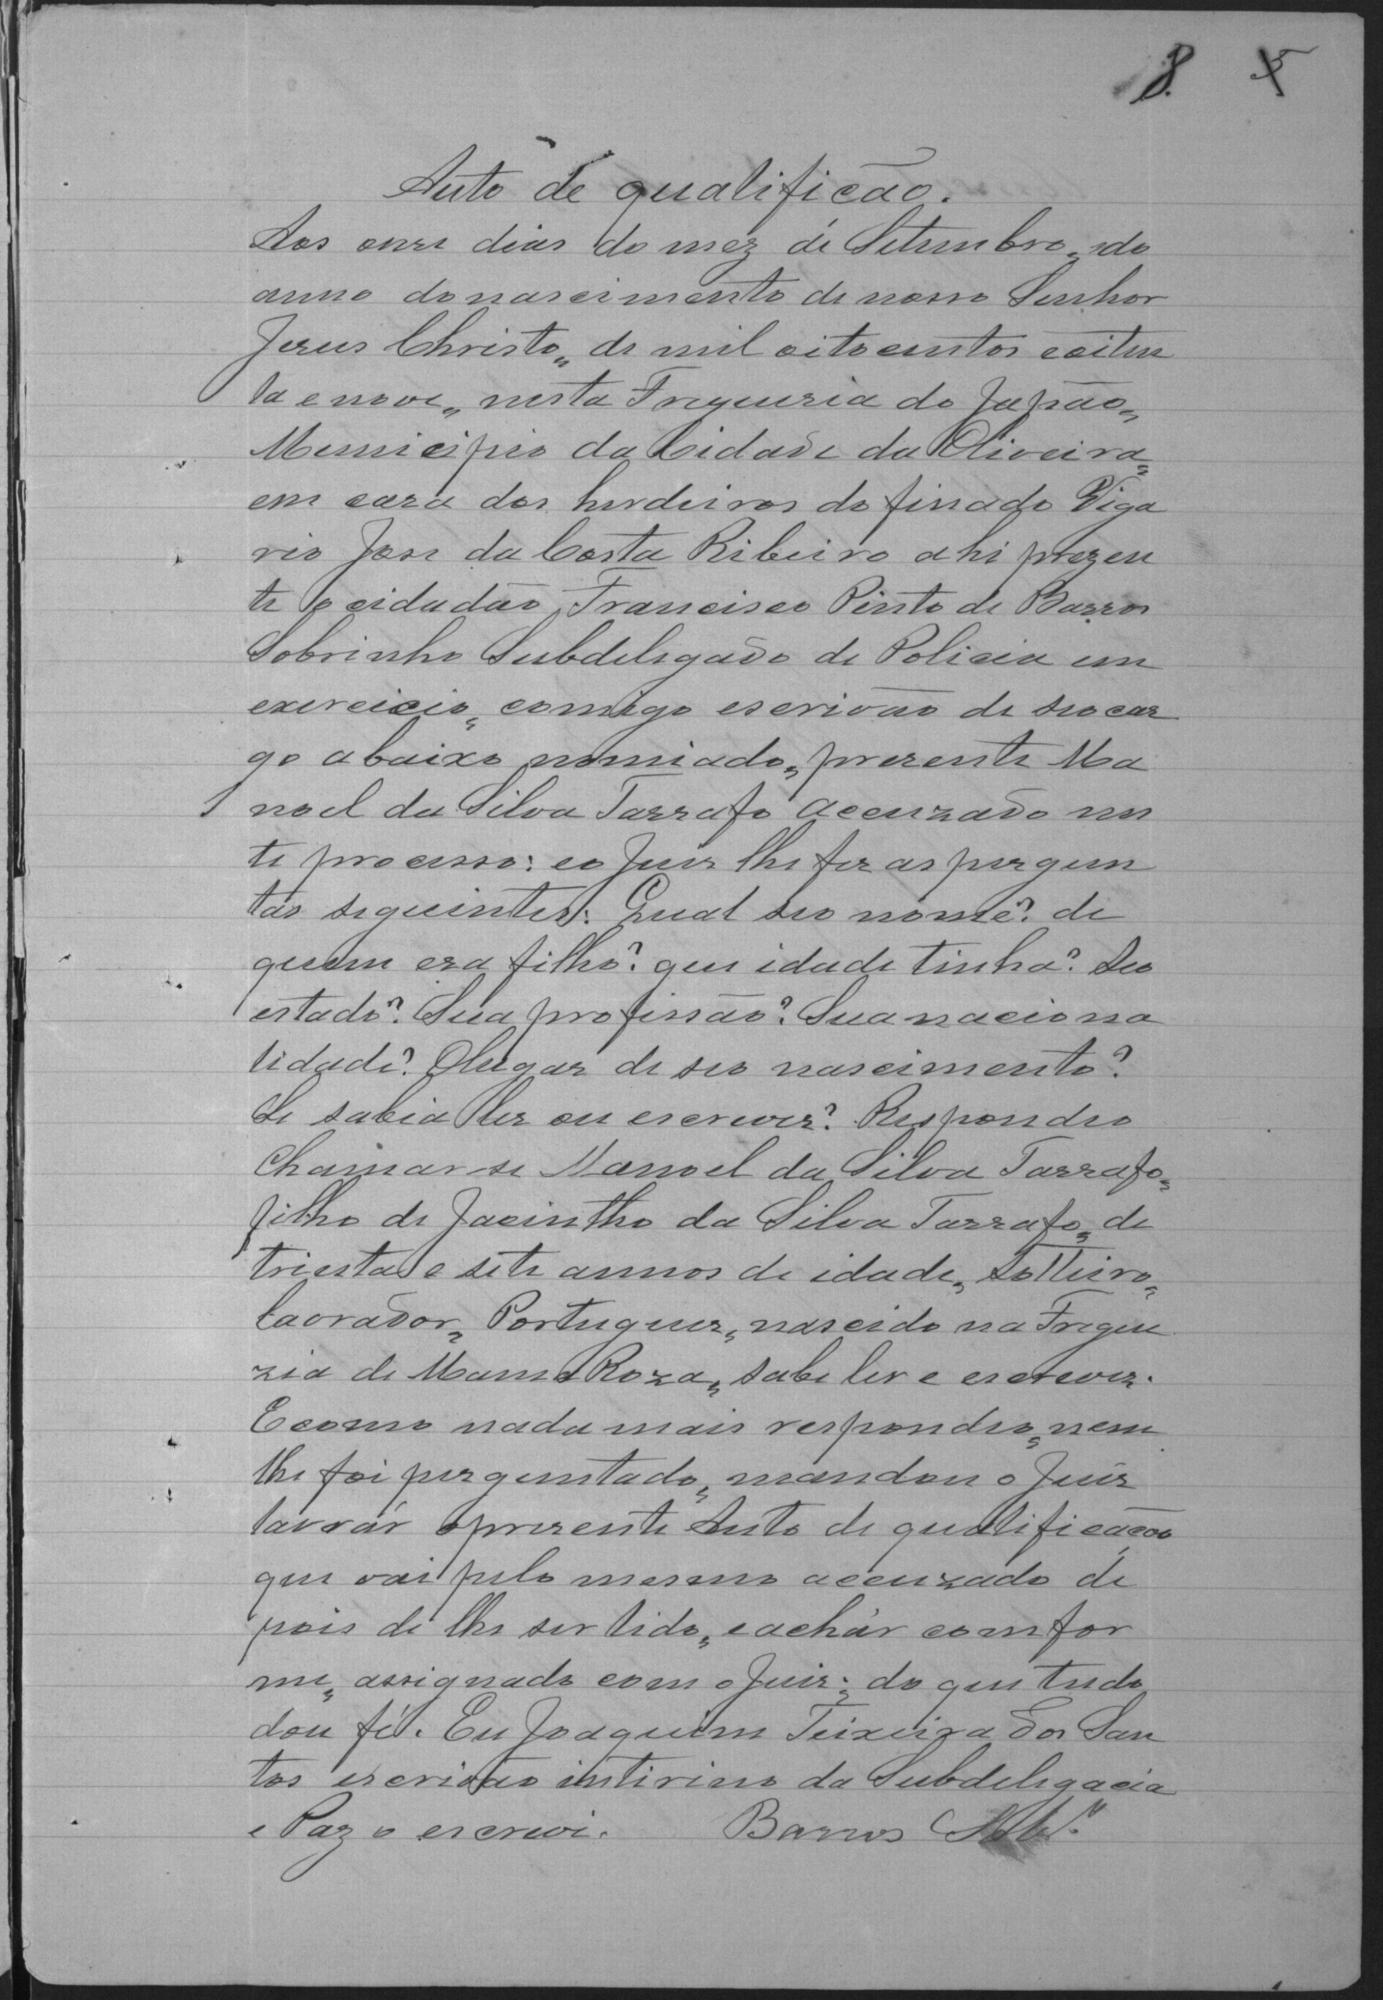 8. 5
Auto de qualificão.
Aos onze dias do mez de Setembro, do
anno do nascimento de nosso Senhor
Jesus Christo, de mil oitocentos e oiten
ta e nove, nesta Freguezia do Japão,
Municipio da Cidade da Oliveira,
em caza dos herdeiros do finado Viga
rio Jose da Costa Ribeiro ahi prezen
te o cidadão, Francisco Pinto de Barros
Sobrinho Subdelegado de Policia em
exercicio, comigo escrivão de seo car
go abaixo nomiado, prezente Ma
noel da Silva Tarrafo accuzado nes
te processo: e o Juiz lhe fez as pergun
tas seguintes: Qual seo nome? de
quem era filho? que idade tinha? Seo
estado? Sua profissão? Sua naciona
lidade? O lugar de seo nascimento?
Se sabia ler ou escrever? Respondeo
Chamar-se Manoel da Silva Tarrafo,
filho de Jacintho da Silva Tarrafo, de
trinta e sete annos de idade, Solteiro,
lavrador, Portuguez, nascido na Fregue
zia de Mama Roza, sabe ler e escrever.
E como nada mais respondeo, nem
lhe foi perguntado, mandou o Juiz
lavrár o prezente Auto de qualificação
que vai pelo mesmo accuzado de
pois de lhe ser lido, e achár comfor
me, assignado com o Juiz; do que tudo
dou fé. Eu Joaquim Teixeira dos San
tos escrivão intirino da Subdelegacia
e Paz o escrevi. Barros Sobr.º